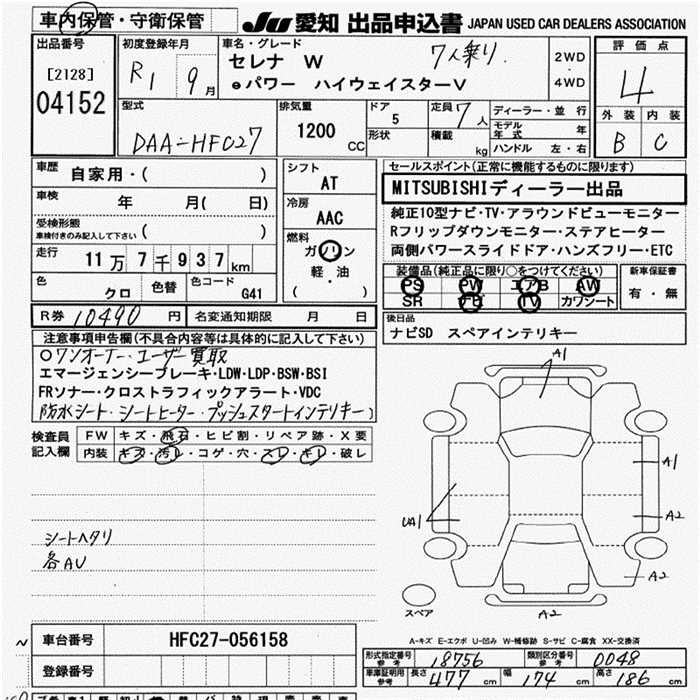 車内保管・守衛保管
JU 愛知 出品申込書 JAPAN USED CAR DEALERS ASSOCIATION
出品番号
[2128]
04152
初度登録年月
R1 9月
車名・グレード
セレナ W 7人乗り
eパワー ハイウェイスターV
2WD
4WD
評価点
4
外装 内装
B C
型式
DAA-HFC27
排気量
1200 CC
ドア 5
形状
定員 7人
積載 kg
ディーラー・並行
モデル年式 年
ハンドル 左・右
車歴
自家用・( )
車検
年 月( 日)
受検形態
車検付きのみ記入して下さい ( )
走行
11万7千937km
色
クロ
色替
色コード
G41
シフト
AT
冷房
AAC
燃料
ガソリン
軽・油
( )
セールスポイント(正常に機能するものに限ります)
MITSUBISHIディーラー出品
純正10型ナビ・TV・アラウンドビューモニター
Rフリップダウンモニター・ステアヒーター
両側パワースライドドア・ハンズフリー・ETC
装備品(純正品に限り○をつけてください)
PS PW エアB AW
SR ナビ TV カワシート
新車保証書
有・無
R券 10490 円
名変通知期限 月 日
後日品
ナビSD スペアインテリキー
注意事項申告欄(不具合内容等は具体的に記入して下さい)
○ワンオーナー・ユーザー買取
エマージェンシーブレーキ・LDW・LDP・BSW・BSI
FRソナー・クロストラフィックアラート・VDC
防水シート・シートヒーター・プッシュスタートインテリキー
検査員記入欄
FW キズ・飛石・ヒビ割・リペア跡・X要
内装 キズ・汚レ・コゲ・穴・スレ・キレ・破レ
シートヘタリ
各AU
A1
A1
A2
UA1
A2
A2
スペア
A-キズ E-エクボ U-凹み W-補修跡 S-サビ C-腐食 XX-交換済
車台番号 HFC27-056158
登録番号
形式指定番号 参考 18756
類別区分番号 参考 0048
車庫証明用 参考 長さ 477cm 幅 174cm 高さ 186cm